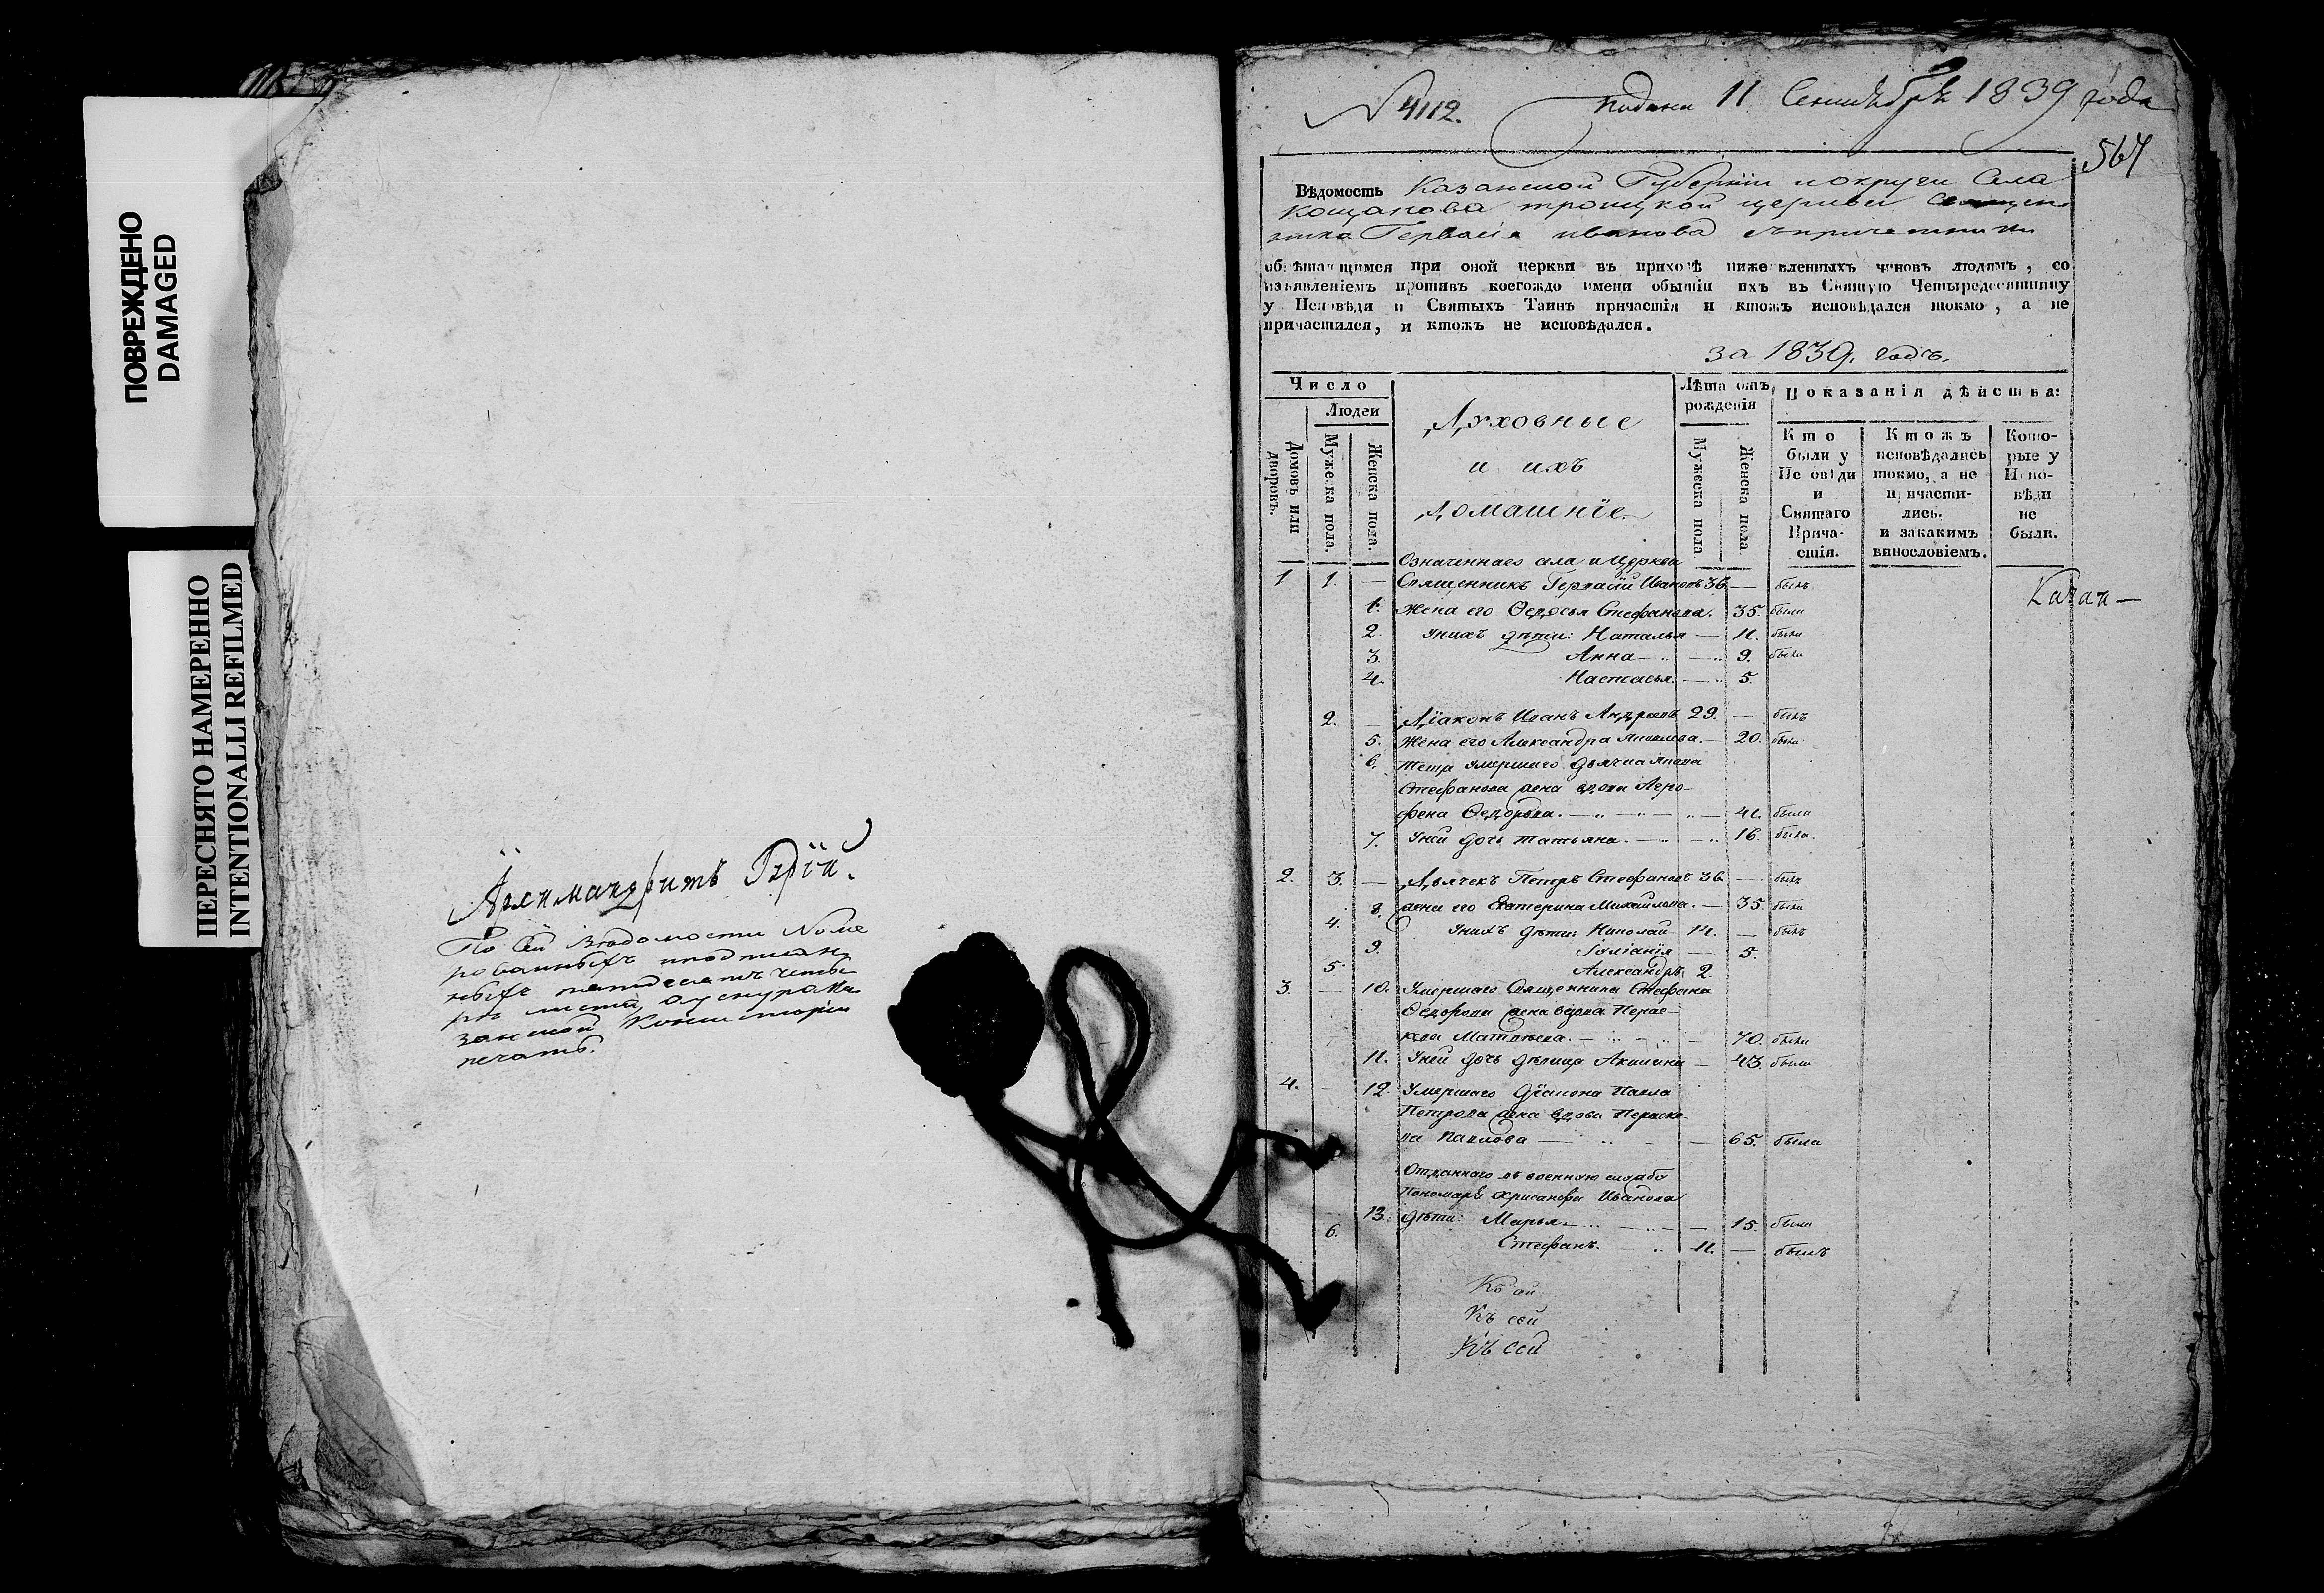 ПОВРЕЖДЕНО
DAMAGED
ПЕРЕСНЯТО НАМЕРЕННО
INTENTIONALLI REFILMED
Архимандритъ Гурій.
По сей ведомости Номе
рованныхъ
ныхъ пятдесятъ четы
ре листа,
занской Консисторіи
печать.
N 4112. подана 11 Сентября 1839 года
567
Вѣдомость Казанской Губерніи и округи Села
Кощакова троицкой церкви Священ
ника Гервасія иванова съ причетники
обрѣтающимся при оной церкви въ приходѣ нижеявленныхъ чиновъ людямъ, со
изъявленіемъ противъ коегождо имени обытіи ихъ въ Святую Четыредесятницу
у Исповѣди и Святыхъ Таинъ причастія и ктожъ исповѣдался токмо, а не
причастился, и ктожъ не исповѣдался.
за 1839. годъ.
Число
Людей
Домовъ или дворовъ.
Мужеска пола.
Женска пола.
Духовные
и ихъ
домашніе
Лѣта отъ рожденія
Мужеска пола
Женска пола
Показанія дѣйства:
Кто были у Исповѣди и Святаго Причастія.
Ктожъ исповѣдались токмо, а не причастились. и закакимъ винословіемъ.
Которые у Исповѣди не были.
Означеннаго села и Церкви
1 1. — Священникъ Гервасій Ивановъ 36 — былъ
1. Жена его Ѳедосья Стефанова. 35. были
2. У нихъ дѣти: Наталья — 11. были
3. Анна — 9. были
4. Настасья. — 5.
2. — Діаконъ Иванъ Андреевъ 29. — былъ
5. Жена его Александра Яковлева. — 20. были
6. Теща умершаго дьячка Якова
Стефанова жена вдова Агро-
фена Ѳедорова. — 41. были
7. У ней дочь Татьяна. — 16. была.
2. 3. — Дьячекъ Петръ Стефановъ 36 — былъ
8. жена его Екатерина Михайлова. — 35. были
4. У нихъ дѣти: Николай — 14. — былъ
9. Іуліанія — 5.
5. Александръ 2.
3. — 10. Умершаго Священника Стефана
Ѳедорова жена вдова Парас-
кева Матвѣева. — 70. были
11. У ней дочь дѣвица Акилина — 43. были
4. — 12. Умершаго діакона Павла
Петрова жена вдова Параске
ва Павлова — 65. была
Отданнаго въ военную службу
Пономаря Хрисанфа Иванова
13. дѣти: Марья — 15. были
6. Стефанъ. 11. — былъ
Къ сей
Къ сей
Къ сей